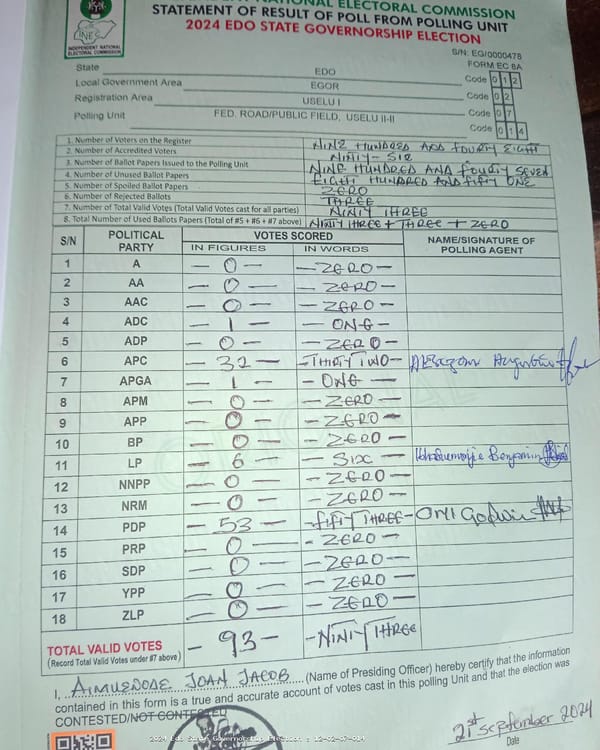 INDEPENDENT NATIONAL ELECTORAL COMMISSION
STATEMENT OF RESULT OF POLL FROM POLLING UNIT
2024 EDO STATE GOVERNORSHIP ELECTION
INEC
INDEPENDENT NATIONAL ELECTORAL COMMISSION
S/N: EG/0000478
FORM EC 8A
State EDO Code 0 1 2
Local Government Area EGOR Code 0 2
Registration Area USELU I Code 0 7
Polling Unit FED. ROAD/PUBLIC FIELD, USELU II-II Code 0 1 4
1. Number of Voters on the Register NINE HUNDRED AND FOURTY EIGHT
2. Number of Accredited Voters NINTY-SIX
3. Number of Ballot Papers Issued to the Polling Unit NINE HUNDRED AND FOURTY SEVEN
4. Number of Unused Ballot Papers EIGHT HUNDRED AND FIFTY ONE
5. Number of Spoiled Ballot Papers ZERO
6. Number of Rejected Ballots THREE
7. Number of Total Valid Votes (Total Valid Votes cast for all parties) NINTY THREE
8. Total Number of Used Ballots Papers (Total of #5 + #6 + #7 above) NINTY THREE + THREE + ZERO
S/N POLITICAL PARTY VOTES SCORED NAME/SIGNATURE OF POLLING AGENT
IN FIGURES IN WORDS
1 A — 0 — — ZERO —
2 AA — 0 — — ZERO —
3 AAC — 0 — — ZERO —
4 ADC — 1 — — ONE —
5 ADP — 0 — — ZERO —
6 APC — 32 — — THIRTY TWO —
7 APGA — 1 — — ONE —
8 APM — 0 — — ZERO —
9 APP — 0 — — ZERO —
10 BP — 0 — — ZERO —
11 LP — 6 — — SIX — Benjamin
12 NNPP — 0 — — ZERO —
13 NRM — 0 — — ZERO —
14 PDP — 53 — — FIFTY THREE — ONI Godwin
15 PRP — 0 — — ZERO —
16 SDP — 0 — — ZERO —
17 YPP — 0 — — ZERO —
18 ZLP — 0 — — ZERO —
TOTAL VALID VOTES — 93 — — NINTY THREE
(Record Total Valid Votes under #7 above)
I, AIMUENODE JOAN JACOB (Name of Presiding Officer) hereby certify that the information
contained in this form is a true and accurate account of votes cast in this polling Unit and that the election was
CONTESTED/NOT CONTESTED
21st september 2024
Date
2024 Edo State Governorship Election : 12-02-07-014